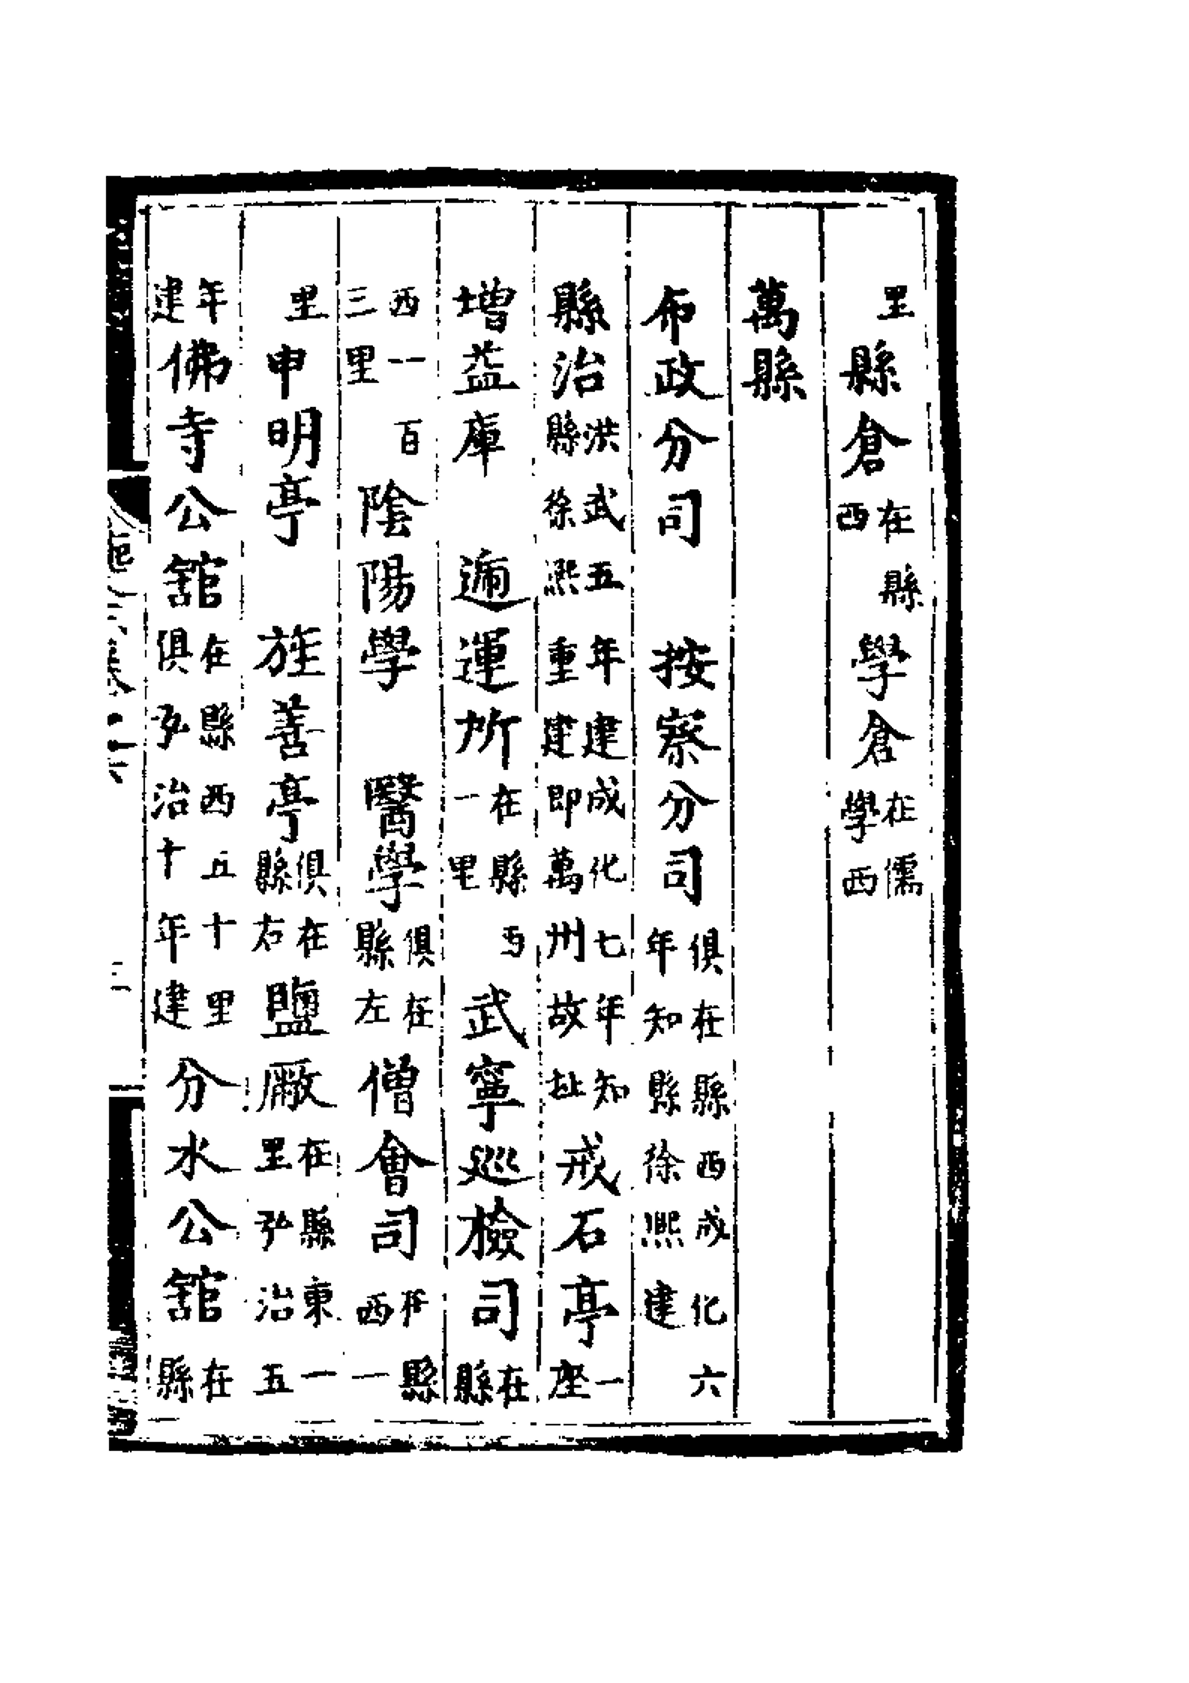 里縣倉在縣西學倉在儒學西
萬縣
布政分司　按察分司俱在縣西成化六年知縣徐熈建
縣治洪武五年建成化七年知縣徐熈重建即萬州故址戒石亭一座
增益庫　遞運所在縣西一里武寧巡檢司在縣
西一百三里陰陽學　醫學俱在縣左僧會司在縣西一
里申明亭　旌善亭俱在縣右鹽厰在縣東一里弘治五
年建佛寺公舘在縣西五十里俱弘治十年建分水公舘在縣